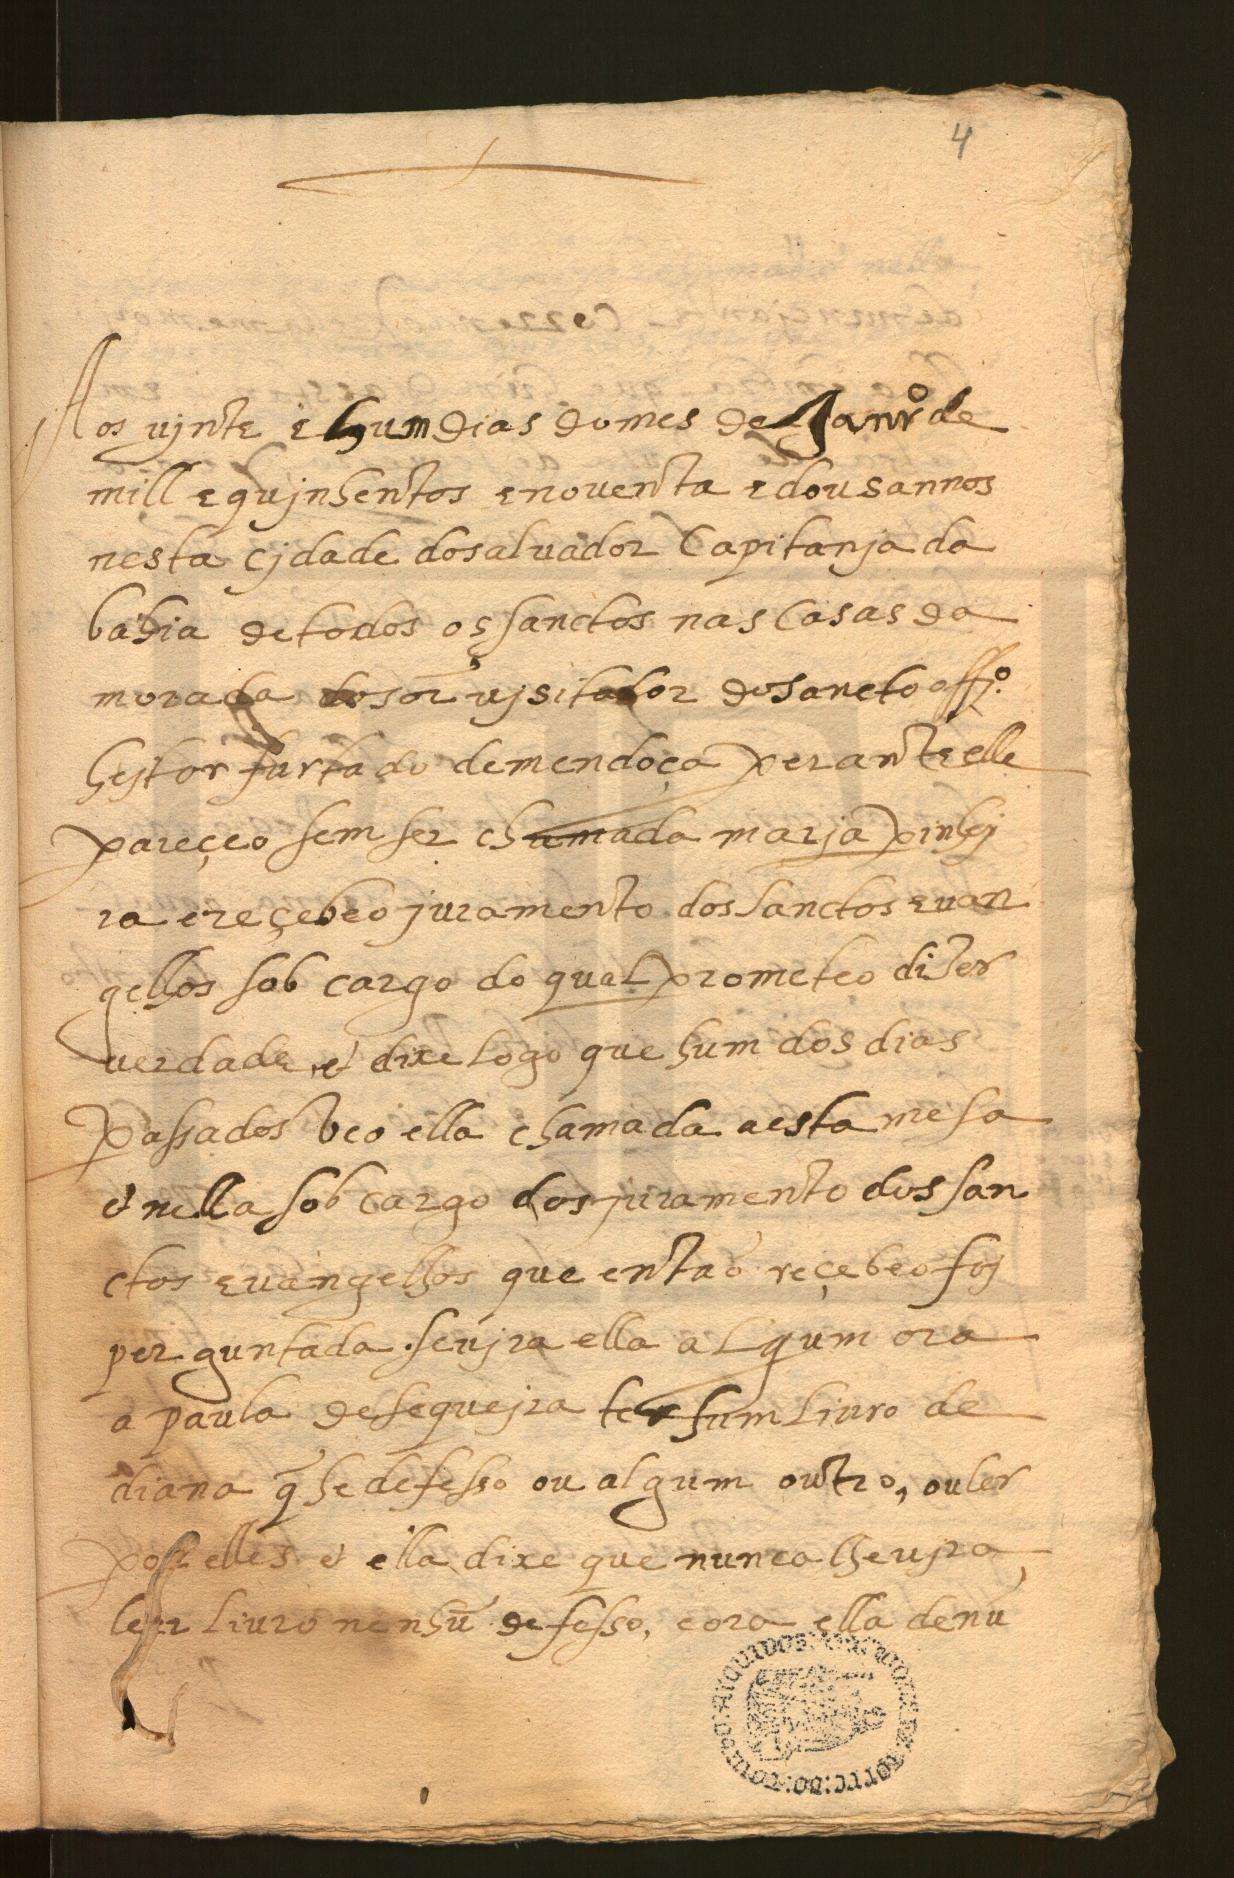 4
Aos vjnte e hum dias do mes de Janrº de
mill e qujnhentos e noventa e dous annos
nesta cjdade do saluador Capitanja da
bahia de todos os sanctos nas Casas da
morada do sor vjsitador do sancto offº
hejtor furtado de mendoça perante elle
pareçeo sem ser chamada marja pinhej
ra e reçebeo juramento dos sanctos euan
gellos sob cargo do qual prometeo dizer
verdade, e dixe logo que hum dos dias
passados veo ella chamada a esta mesa
e nella sob cargo dos juramento dos san
ctos euangelhos que entaõ reçebeo foj
perguntada se vjra ella algum ora
a paula de sequejra ter hum liuro de
diana q̃ he defesso ou algum outro, ou ler
por elles e ella dixe que nunca lhe vjra,
leer liuro nenhũ defesso, e ora ella denu